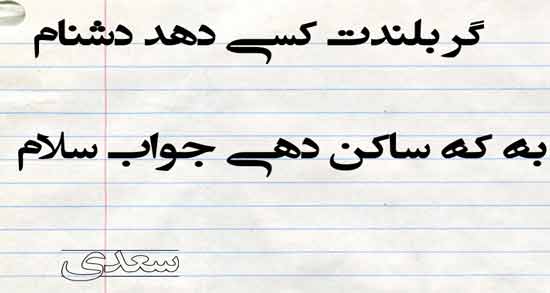 گر بلندت کسی دهد دشنام
به که ساکن دهی جواب سلام
سعدی